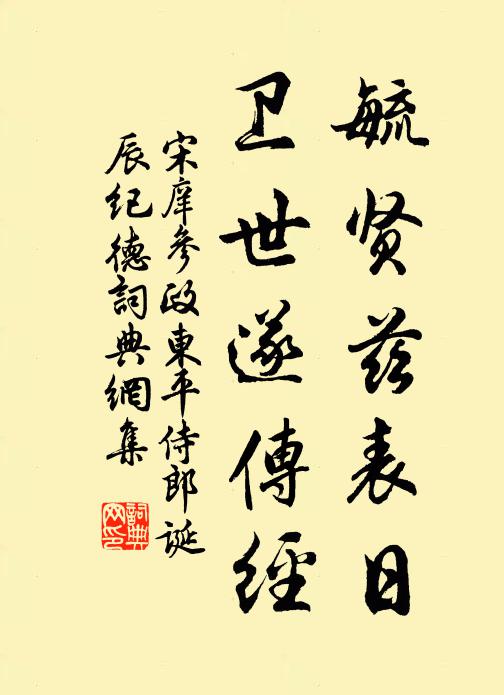 毓贤兹表日
卫世遂傳經
宋庠參政東平侍郎誕
辰紀德詞典網集
詞典
网印